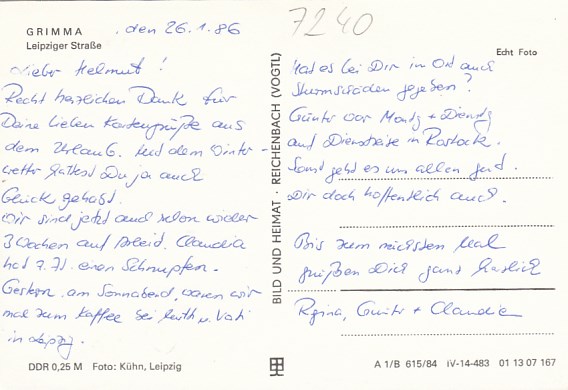 7240
GRIMMA
Leipziger Straße
, den 26.1.86
Lieber Helmut!
Recht herzlichen Dank für
Deine lieben Kartengrüße aus
dem Urlaub. Mit dem Winter-
wetter hattest Du ja auch
Glück gehabt.
Wir sind jetzt auch schon wieder
3 Wochen auf Arbeit. Claudia
hat z. Zt. einen Schnupfen.
Gestern, am Sonnabend, waren wir
mal zum Kaffee bei Mutti u. Vati
in Leipzig.
DDR 0,25 M Foto: Kühn, Leipzig
BILD UND HEIMAT · REICHENBACH (VOGTL)
Echt Foto
Hat es bei Dir im Ort auch
Sturmschäden gegeben?
Günter war Montg + Dienstg
auf Dienstreise in Rostock.
Sonst geht es uns allen gut.
Dir doch hoffentlich auch.
Bis zum nächsten Mal
grüßen Dich ganz herzlich
Regina, Günter + Claudia
A 1/B 615/84 IV-14-483 01 13 07 167